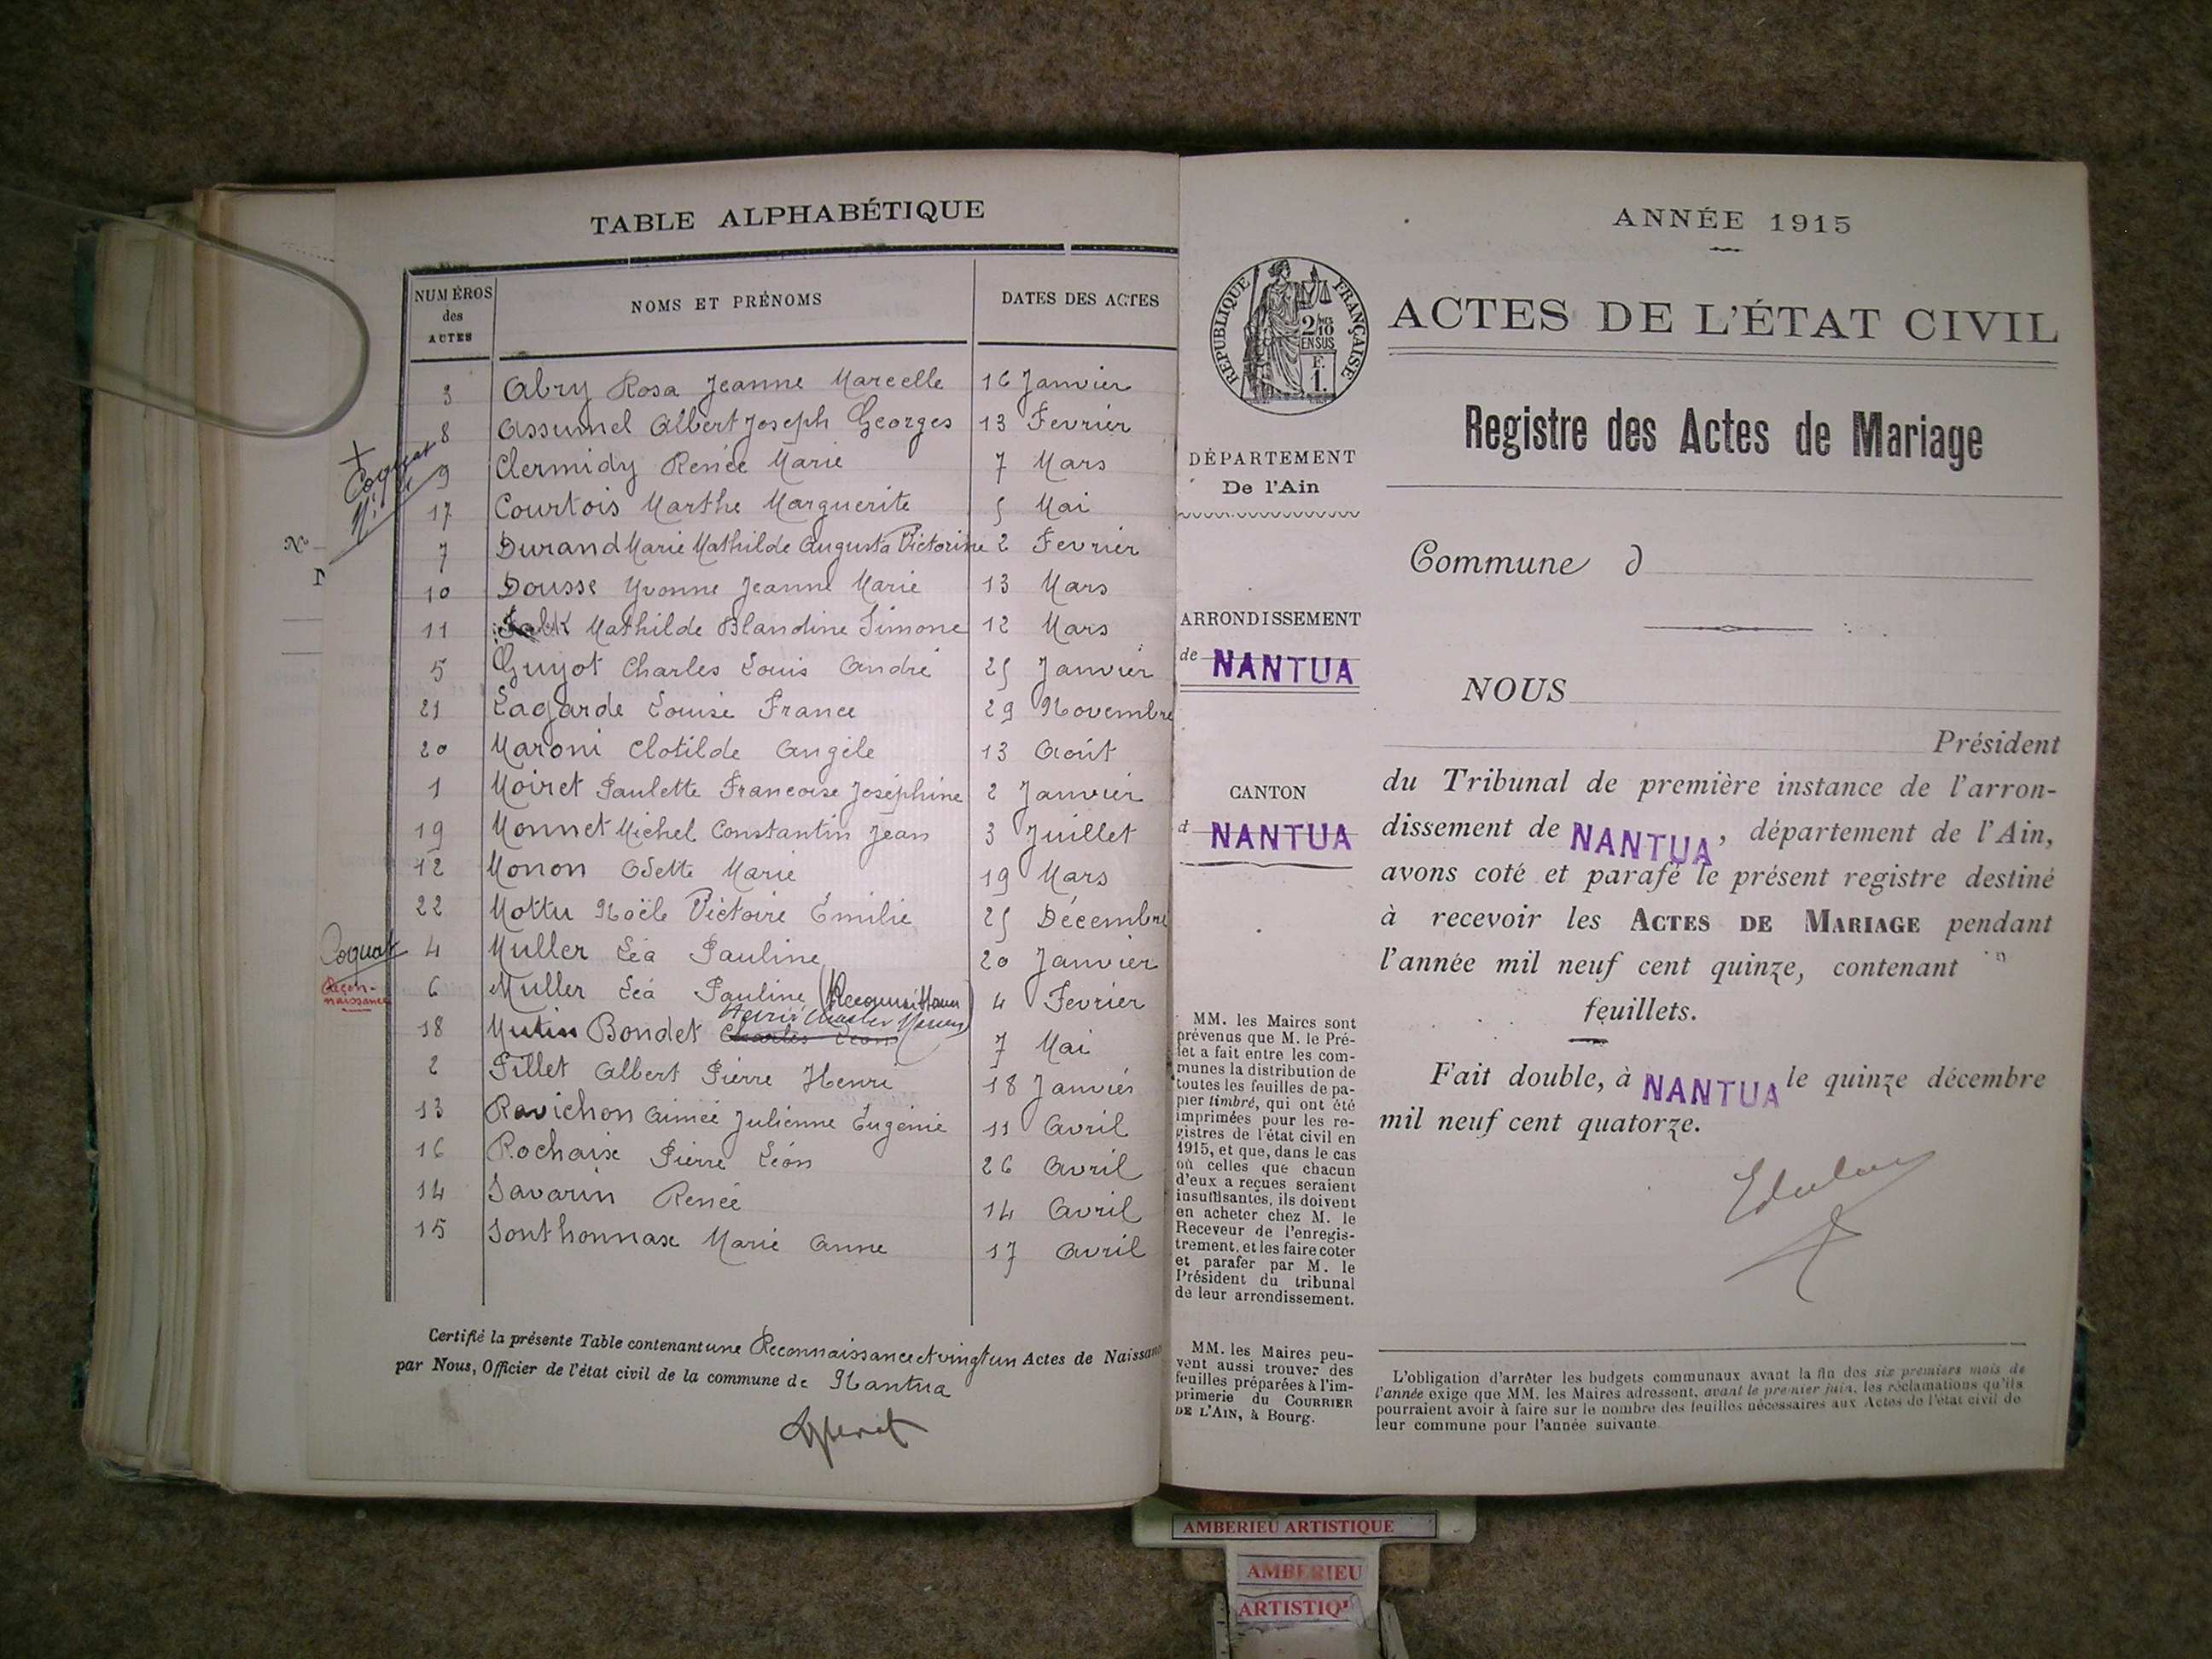 TABLE ALPHABÉTIQUE
NUMÉROS des ACTES NOMS ET PRÉNOMS DATES DES ACTES
3 Abry Rosa Jeanne Marcelle 16 Janvier
8 Assumel Albert Joseph Georges 13 Fevrier
9 Clermidy Renée Marie 7 Mars
17 Courtois Marthe Marguerite 5 Mai
7 Durand Marie Mathilde Augusta Victorine 2 Fevrier
10 Dousse Yvonne Jeanne Marie 13 Mars
11 Falk Mathilde Blandine Simone 12 Mars
5 Guyot Charles Louis André 25 Janvier
21 Lagarde Louise France 29 Novembre
20 Maroni Clotilde Angèle 13 Août
1 Moiret Paulette Francoise Joséphine 2 Janvier
19 Monnet Michel Constantin Jean 3 Juillet
12 Monon Odette Marie 19 Mars
22 Mottu Noële Victoire Émilie 25 Décembre
Coquat 4 Muller Léa Pauline 20 Janvier
Recon-
naissance
6 Muller Léa Pauline (Reconnaissance) 4 Fevrier
18 Mutin Bondet Charles 7 Mai
2 Pillet Albert Pierre Henri 18 Janvier
13 Ravichon Aimée Julienne Eugénie 11 Avril
16 Rochaix Pierre Léon 26 Avril
14 Savarin Renée 14 Avril
15 Sonthonnax Marie Anne 17 Avril
Certifié la présente Table contenant une Reconnaissance et vingt un Actes de Naissan
par Nous, Officier de l'état civil de la commune de Nantua
Coquat
N°
ANNÉE 1915
RÉPUBLIQUE FRANÇAISE
2/10
EN SUS
F.
1.
ACTES DE L'ÉTAT CIVIL
Registre des Actes de Mariage
DÉPARTEMENT
De l'Ain
ARRONDISSEMENT
de NANTUA
CANTON
d NANTUA
MM. les Maires sont
prévenus que M. le Pré-
fet a fait entre les com-
munes la distribution de
toutes les feuilles de pa-
pier timbré, qui ont été
imprimées pour les re-
gistres de l'état civil en
1915, et que, dans le cas
où celles que chacun
d'eux a reçues seraient
insuffisantes, ils doivent
en acheter chez M. le
Receveur de l'enregis-
trement, et les faire coter
et parafer par M. le
Président du tribunal
de leur arrondissement.
MM. les Maires peu-
vent aussi trouver des
feuilles préparées à l'im-
primerie du COURRIER
DE L'AIN, à Bourg.
Commune d
NOUS
Président
du Tribunal de première instance de l'arron-
dissement de NANTUA, département de l'Ain,
avons coté et parafé le présent registre destiné
à recevoir les ACTES DE MARIAGE pendant
l'année mil neuf cent quinze, contenant
feuillets.
Fait double, à NANTUA le quinze décembre
mil neuf cent quatorze.
L'obligation d'arrêter les budgets communaux avant la fin des six premiers mois de
l'année exige que MM. les Maires adressent, avant le premier juin, les réclamations qu'ils
pourraient avoir à faire sur le nombre des feuilles nécessaires aux Actes de l'état civil de
leur commune pour l'année suivante
AMBERIEU ARTISTIQUE
AMBERIEU
ARTISTIQU